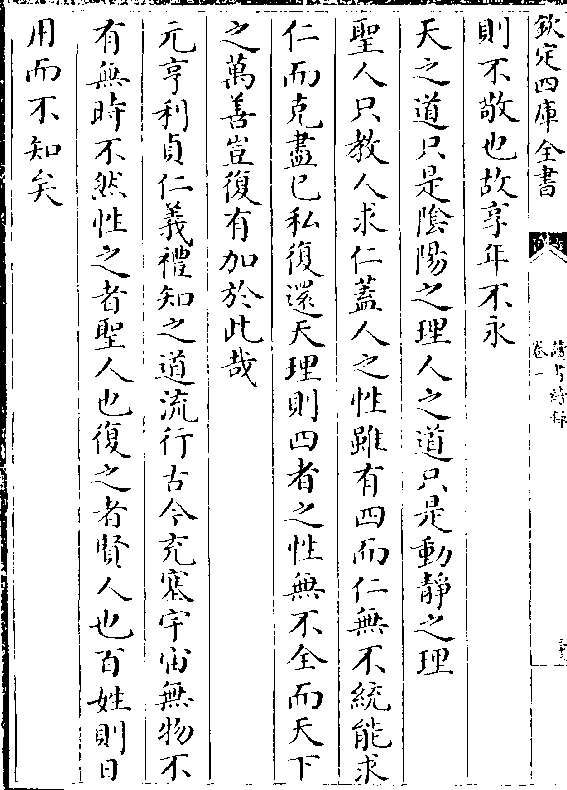 欽定四庫全書
讀書續錄
卷一
則不敬也故享年不永
天之道只是陰陽之理人之道只是動靜之理
聖人只教人求仁蓋人之性雖有四而仁無不統能求
仁而克盡已私復還天理則四者之性無不全而天下
之萬善豈復有加於此哉
元亨利貞仁義禮知之道流行古今充塞宇宙無物不
有無時不然性之者聖人也復之者賢人也百姓則日
用而不知矣